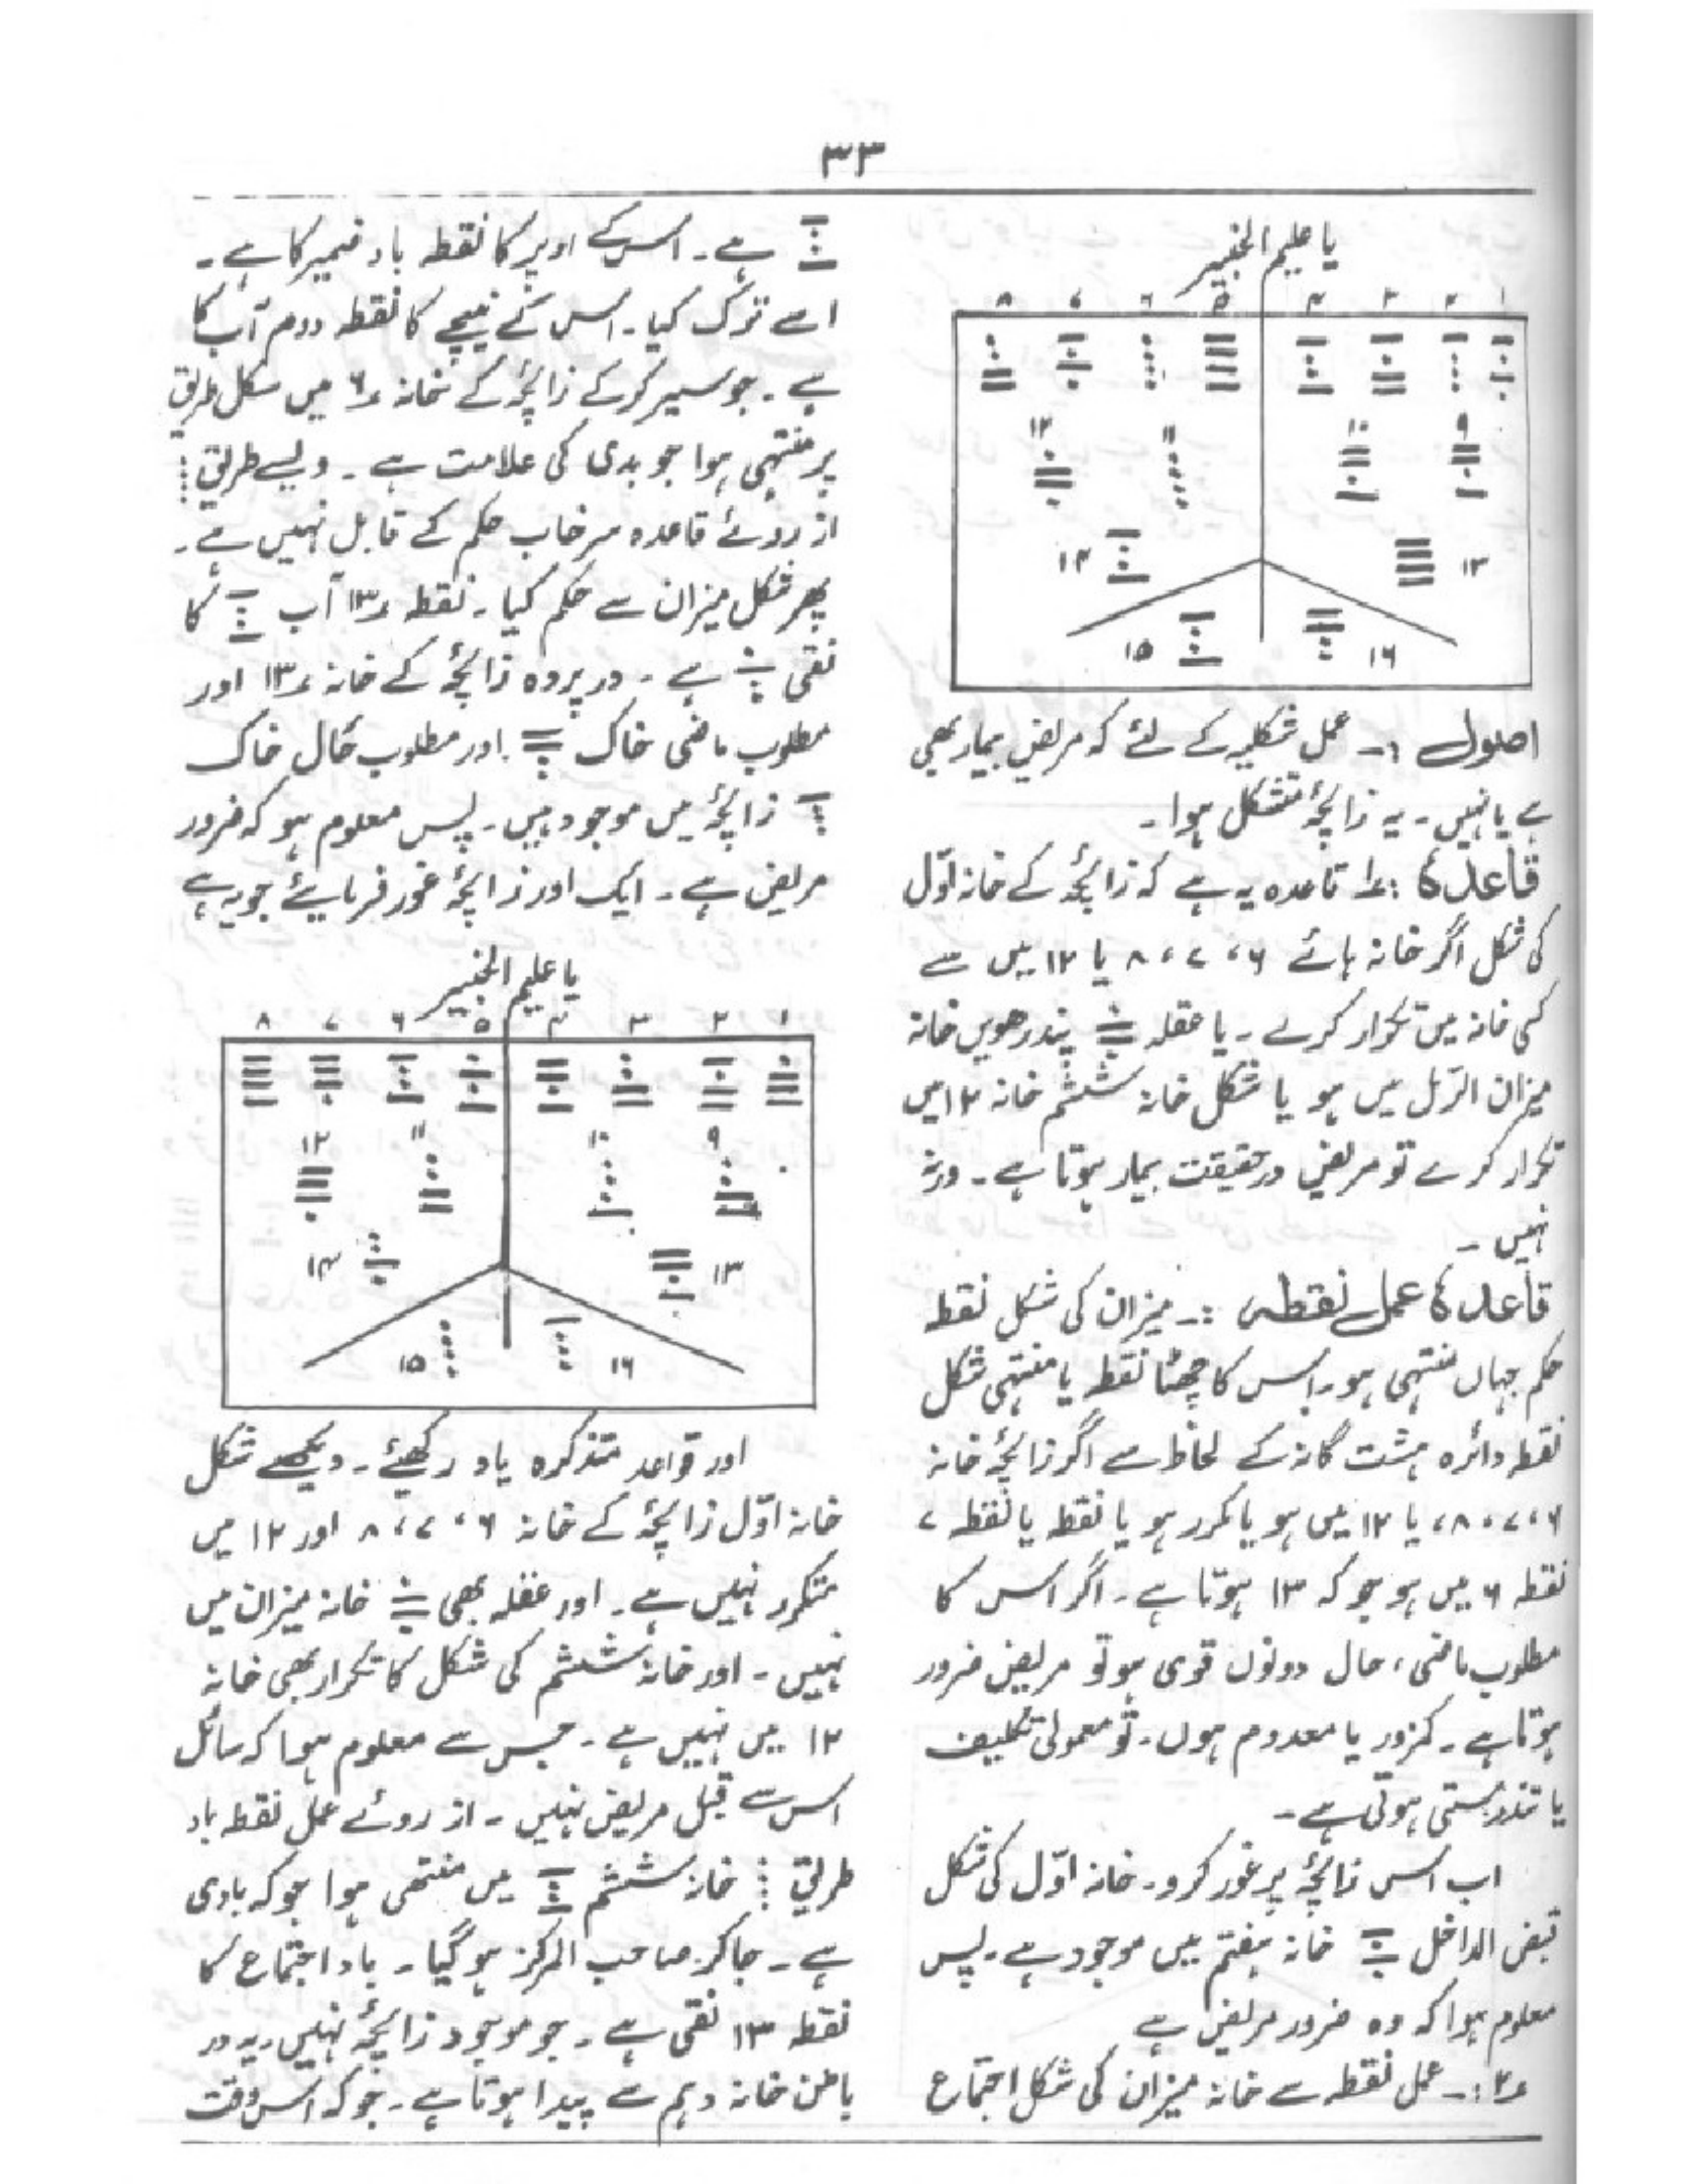 ۳۳
یا علیم الخبیر
۱ ۲ ۳ ۴ ۵ ۶ ۷ ۸
۹ ۱۰ ۱۱ ۱۲
۱۳ ۱۴
۱۶ ۱۵
اصول ۱:۔ عمل شکلیہ کے لئے کہ مریض بیمار بھی
ہے یا نہیں۔ یہ زائچہ متشکل ہوا۔
قاعدہ ۱: قاعدہ یہ ہے کہ زائچہ کے خانہ اوّل
کی شکل اگر خانہ ہائے ۶، ۷، ۸ یا ۱۲ میں سے
کسی خانہ میں تکرار کرے۔ یا عقلہ پندرھویں خانہ
میزان الرّمل میں ہو یا شکل خانہ ششم خانہ ۱۲ میں
تکرار کرے تو مریض درحقیقت بیمار ہوتا ہے۔ ورنہ
نہیں۔
قاعدہ عمل نقطہ :۔ میزان کی شکل نقطہ
حکم جہاں منتہی ہو۔ اس کا چھٹا نقطہ یا منتہی شکل
نقطہ دائرہ ہشت گانہ کے لحاظ سے اگر زائچہ خانہ
۶، ۷، ۸، یا ۱۲ میں ہو یا مکرر ہو یا نقطہ یا نقطہ ۷
نقطہ ۶ میں ہو جو کہ ۱۳ ہوتا ہے۔ اگر اس کا
مطلوب ماضی، حال دونوں قوی ہو تو مریض ضرور
ہوتا ہے۔ کمزور یا معدوم ہوں۔ تو معمولی تکلیف
یا تندرستی ہوتی ہے۔
اب اس زائچہ پر غور کرو۔ خانہ اوّل کی شکل
قبض الداخل خانہ ہفتم میں موجود ہے۔ پس
معلوم ہوا کہ وہ ضرور مریض ہے
۲:۔ عمل نقطہ سے خانہ میزان کی شکل اجتماع
ہے۔ اس کے اوپر کا نقطہ باد ضمیر کا ہے۔
اسے ترک کیا۔ اس کے نیچے کا نقطہ دوم آب کا
ہے۔ جو سیر کر کے زائچہ کے خانہ ۶ میں شکل طریق
پر منتہی ہوا جو بدی کی علامت ہے۔ ویسے طریق
از روئے قاعدہ حکم کے قابل نہیں ہے۔
پھر شکل میزان سے حکم کیا۔ نقطہ ۱۳ آب کا
نقی ہے۔ در پردہ زائچہ کے خانہ ۱۳ اور
مطلوب ماضی خاک اور مطلوب حال خاک
زائچہ میں موجود ہیں۔ پس معلوم ہو کہ ضرور
مریض ہے۔ ایک اور زائچہ غور فرمایئے جو یہ ہے
یا علیم الخبیر
۱ ۲ ۳ ۴ ۵ ۶ ۷ ۸
۹ ۱۰ ۱۱ ۱۲
۱۳ ۱۴
۱۶ ۱۵
اور قواعد متذکرہ یاد رکھئے۔ دیکھئے شکل
خانہ اوّل زائچہ کے خانہ ۶، ۷، ۸ اور ۱۲ میں
متکرر نہیں ہے۔ اور عقلہ بھی خانہ میزان میں
نہیں۔ اور خانہ ششم کی شکل کا تکرار بھی خانہ
۱۲ میں نہیں ہے۔ جس سے معلوم ہوا کہ سائل
اس سے قبل مریض نہیں۔ از روئے عمل نقطہ باد
طریق خانہ ششم میں منتھی ہوا جو کہ بادی
ہے۔ جا کر صاحب المرکز ہو گیا۔ باد اجتماع کا
نقطہ ۱۳ نقی ہے۔ جو موجود زائچہ نہیں۔ یہ در
باطن خانہ دہم سے پیدا ہوتا ہے۔ جو کہ اس وقت